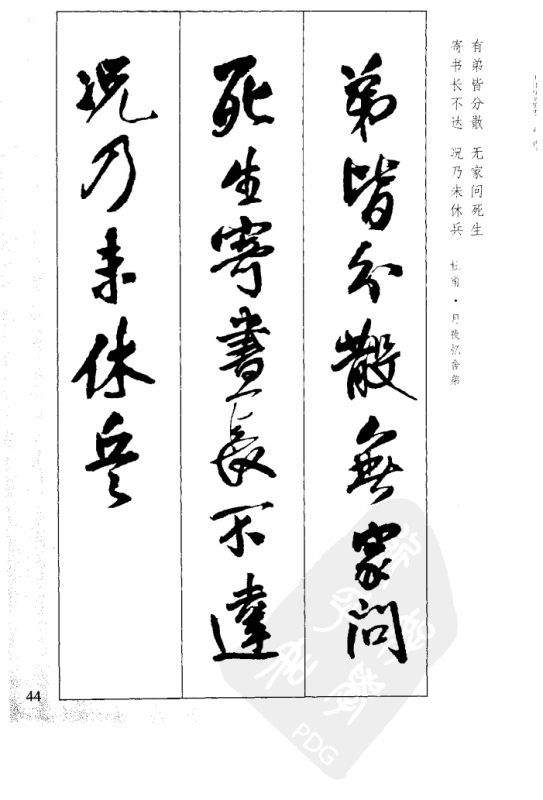 有弟皆分散　无家问死生
寄书长不达　况乃未休兵
杜甫·月夜忆舍弟
弟皆分散無家問
死生寄書長不達
况乃未休兵
44
PDG